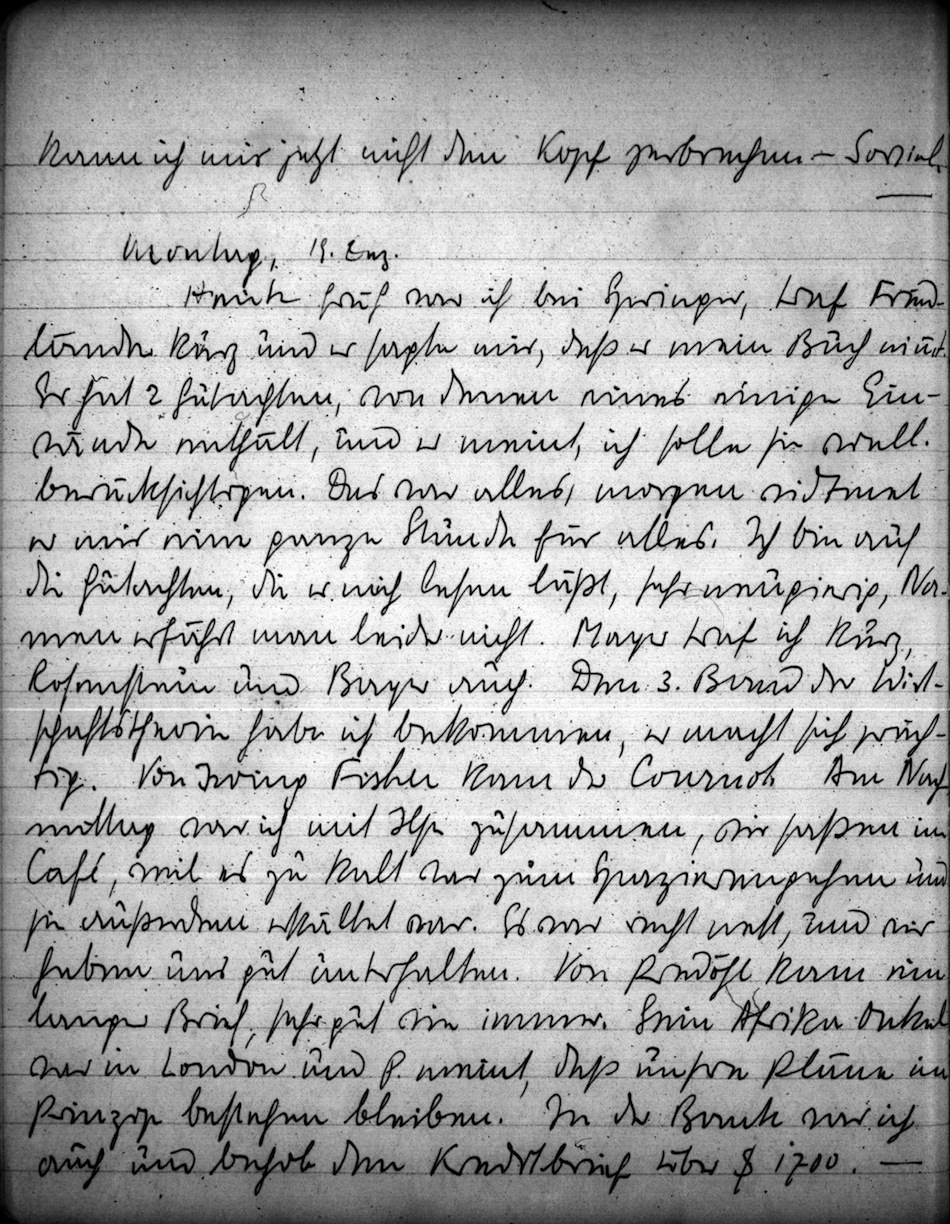 kann ich mir jetzt nicht den Kopf zerbrechen – Sozial.
Montag, 19. Dez.
Heute früh war ich bei Springer, traf Fried-
länder kurz und er sagte mir, daß er mein Buch nimt.
Er hat 2 Gutachten, von denen eines einige Ein-
wände enthält, und er meint, ich solle sie evtl.
berücksichtigen. Das war alles, morgen widmet
er mir eine ganze Stunde für alles. Ich bin auf
die Gutachten, die er mich lesen läßt, sehr neugierig, Na-
men erfährt man leider nicht. Mayer traf ich kurz,
Rosenstein und Bayer auch. Den 3. Band der Wirt-
schaftstheorie habe ich bekommen, er macht sich präch-
tig. Von Irving Fisher kam der Cournot. Am Nach
mittag war ich mit Ilse zusammen, wir saßen im
Café, weil es zu kalt war zum Spazierengehen und
sie außerdem erkältet war. Es war recht nett, und wir
haben uns gut unterhalten. Von Predöhl kam ein
langer Brief, sehr gut wie immer. Sein Afrika Onkel
war in London und P. meint, daß unsere Pläne im
Prinzip bestehen bleiben. In der Bank war ich
auch und behob den Kreditbrief über $ 1700. —